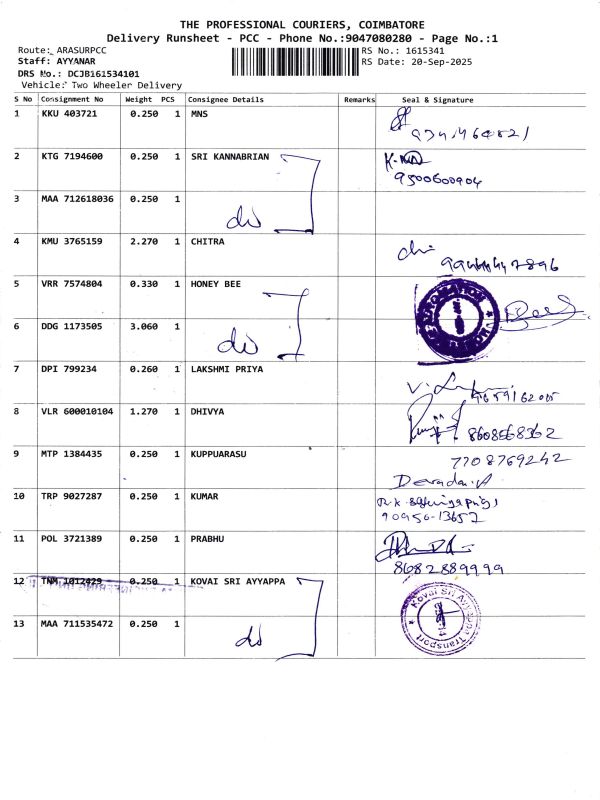 THE PROFESSIONAL COURIERS, COIMBATORE
Delivery Runsheet - PCC - Phone No.:9047080280 - Page No.:1
Route: ARASURPCC
RS No.: 1615341
Staff: AYYANAR
RS Date: 20-Sep-2025
DRS No.: DCJB161534101
Vehicle: Two Wheeler Delivery
S No Consignment No Weight PCS Consignee Details Remarks Seal & Signature
1 KKU 403721 0.250 1 MNS
2 KTG 7194600 0.250 1 SRI KANNABRIAN
9500600904
3 MAA 712618036 0.250 1
4 KMU 3765159 2.270 1 CHITRA
5 VRR 7574804 0.330 1 HONEY BEE
6 DDG 1173505 3.060 1
7 DPI 799234 0.260 1 LAKSHMI PRIYA
8 VLR 600010104 1.270 1 DHIVYA
8608568362
9 MTP 1384435 0.250 1 KUPPUARASU 7708769242
10 TRP 9027287 0.250 1 KUMAR
90950-13657
11 POL 3721389 0.250 1 PRABHU
8682889999
12 TNM 1012429 0.250 1 KOVAI SRI AYYAPPA
Kovai Sri Ayyappa Transport
13 MAA 711535472 0.250 1